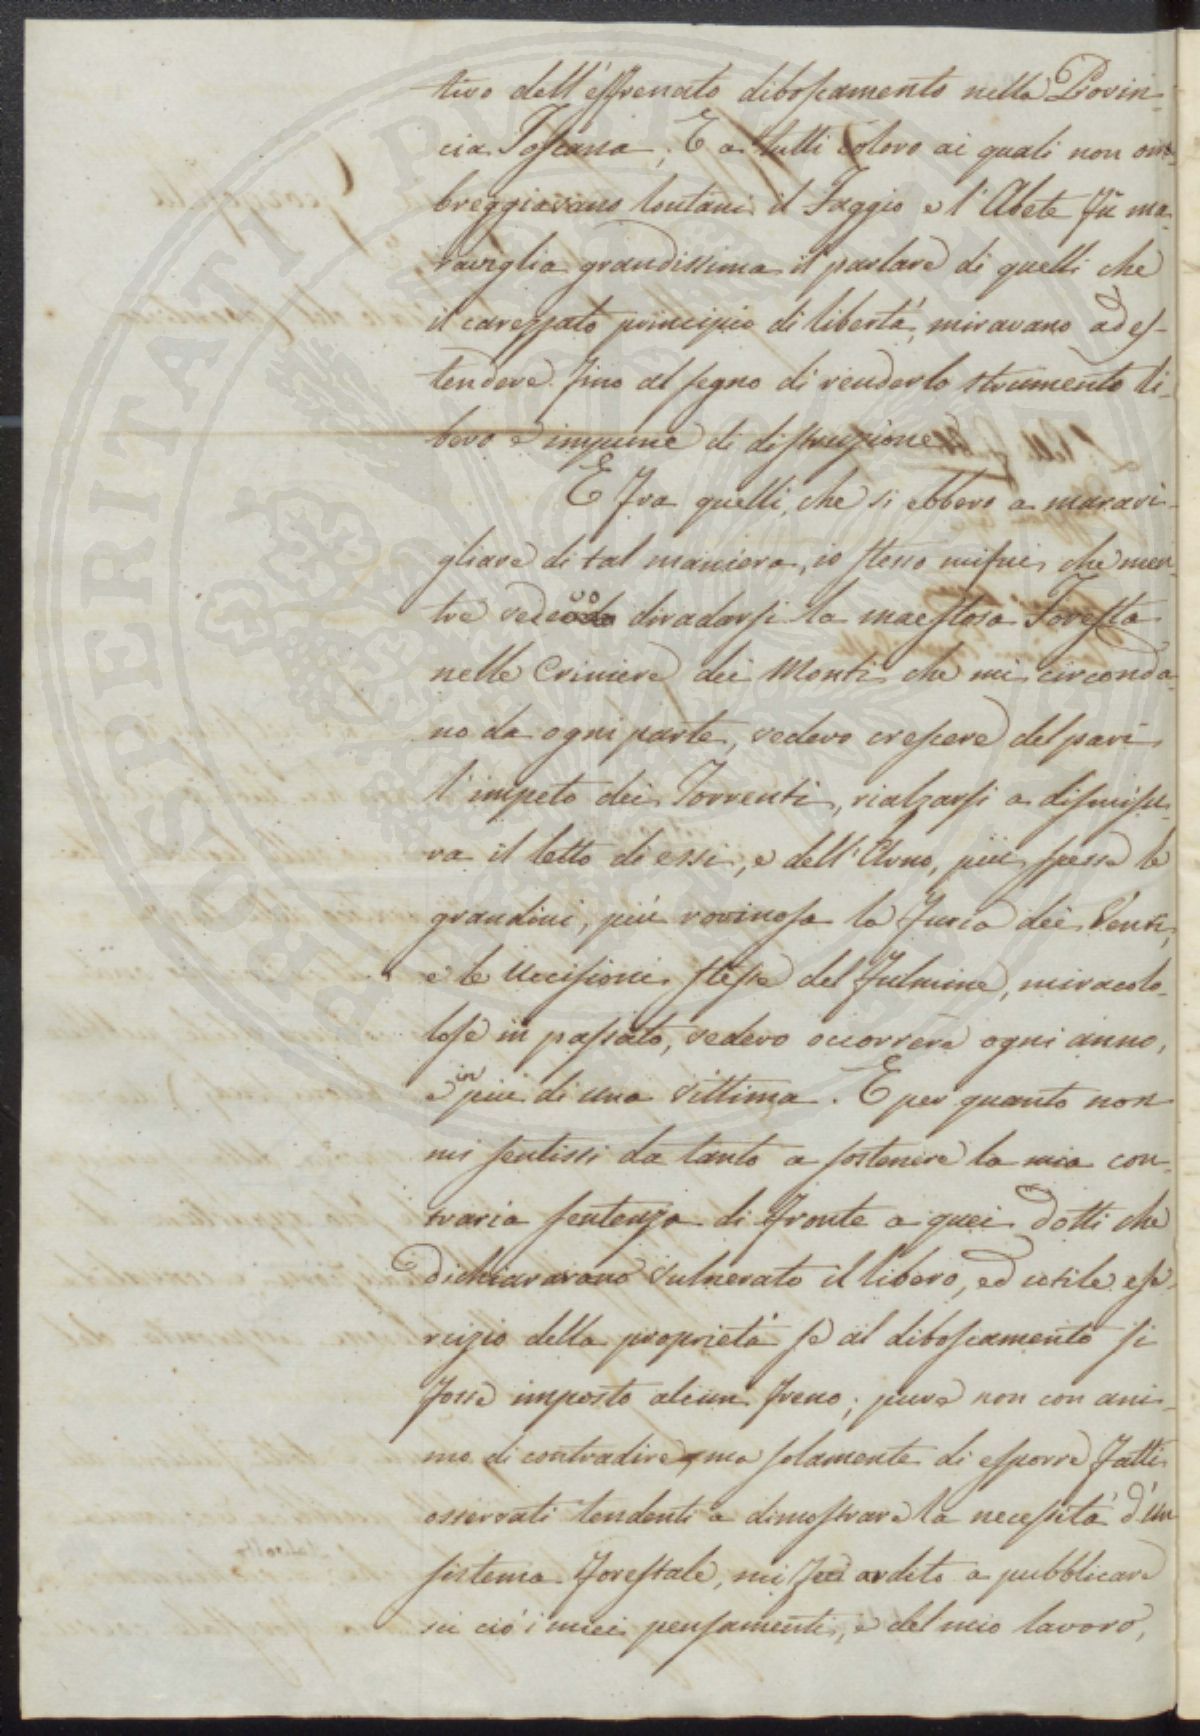 tivo dell'effrenato diboscamento nella Provin-
cia Toscana; E a tutti coloro ai quali non om-
breggiavano lontani il Faggio e l'Abete fu ma-
raviglia grandissima il parlare di quelli che
il carezzato principio di libertà, miravano ad es-
tendere fino al segno di renderlo strumento li-
bero e impune di distruzione.
E fra quelli, che si ebbero a maravi-
gliare di tal maniera, io stesso mi fui, che men-
tre vedevo diradarsi la maestosa Foresta
nelle Criniere dei Monti che mi circonda-
no da ogni parte, vedevo crescere del pari
l'impeto dei Torrenti, rialzarsi a dismisu-
ra il letto di essi, e dell'Arno, più spesse le
grandini, più rovinosa la furia dei Venti,
e le uccisioni stesse del fulmine, miracolo-
lose in passato, vedevo occorrere ogni anno,
e in più di una vittima. E per quanto non
mi sentissi da tanto a sostenere la mia con-
traria sentenza di fronte a quei dotti che
dichiaravano vulnerato il libero, ed utile ese-
rcizio della proprietà se al diboscamento si
fosse imposto alcun freno; pure non con ani-
mo di contradire, ma solamente di esporre fatti
osservati tendenti a dimostrare la necessità d'un
sistema forestale, mi feci ardito a pubblicare
su ciò i miei pensamenti, e del mio lavoro,
SOSPERITATI PUBLICAE